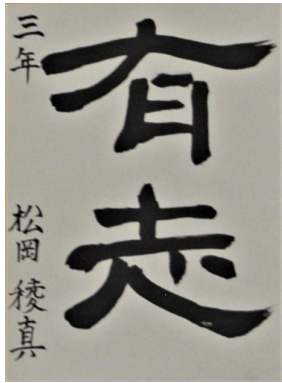 有志
三年
松岡稜真